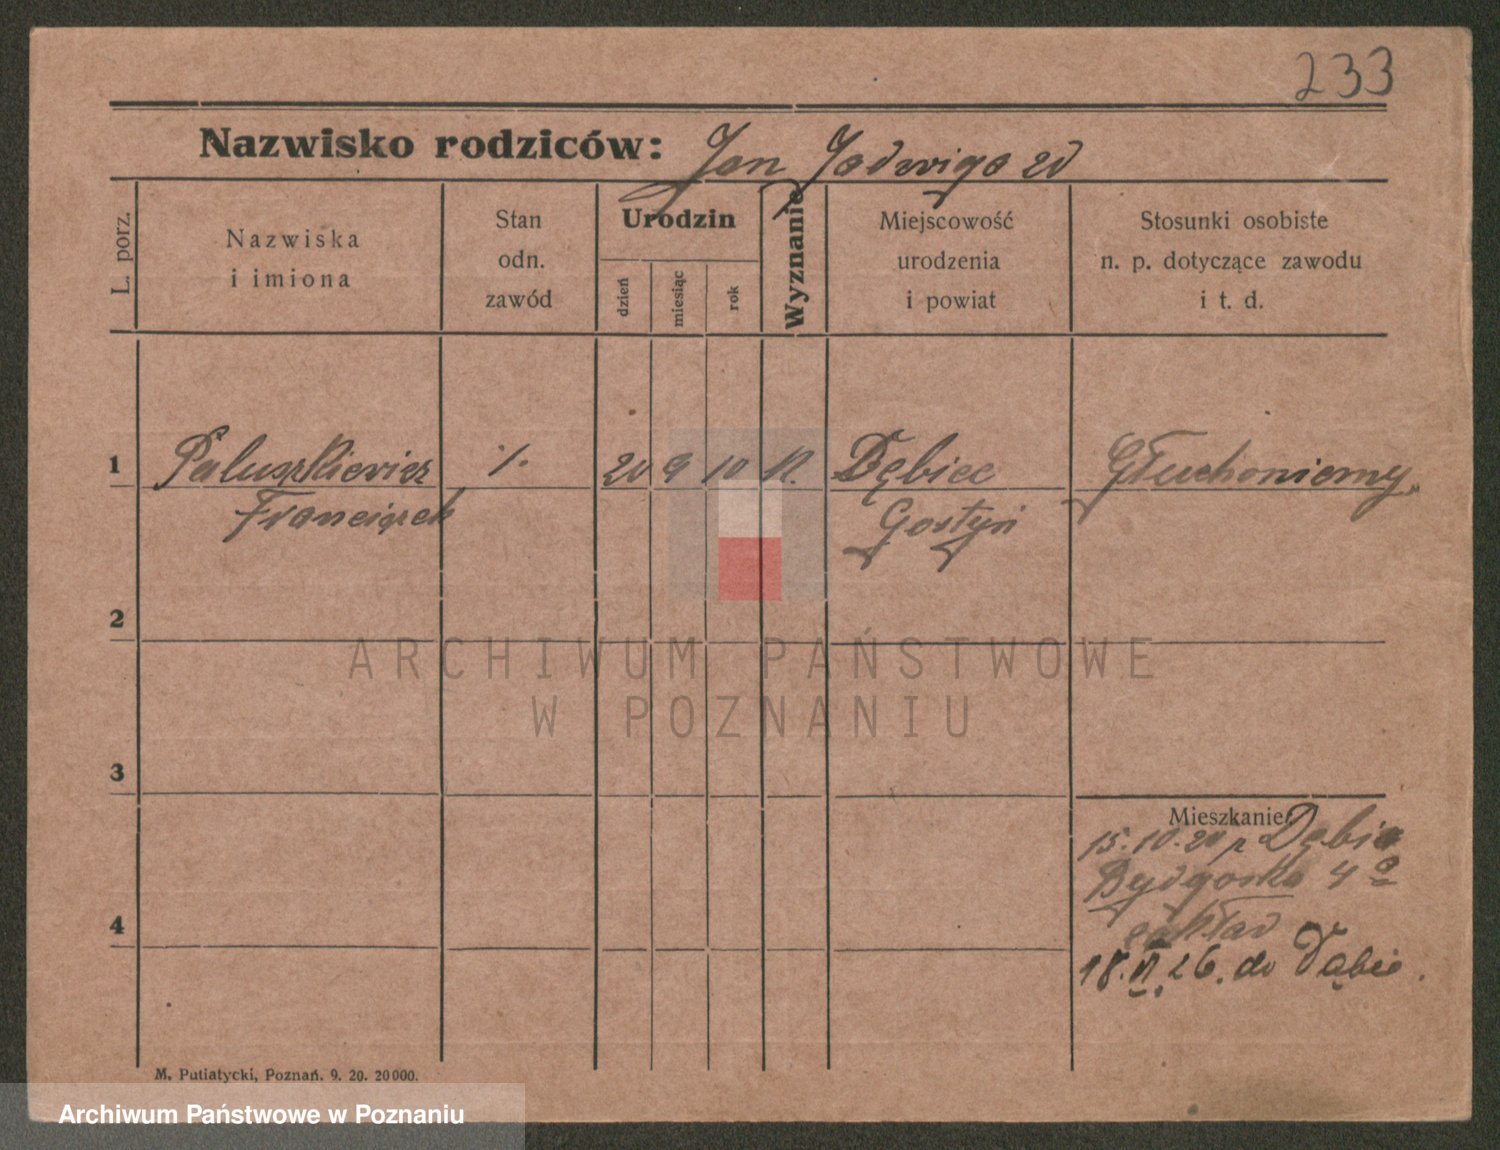 233
Nazwisko rodziców: Jan Jadwiga zd
L. porz.
Nazwiska
i imiona
Stan
odn.
zawód
Urodzin
dzień
miesiąc
rok
Wyznanie
Miejscowość
urodzenia
i powiat
Stosunki osobiste
n. p. dotyczące zawodu
i t. d.
1 Paluszkiewicz ./. 20 9 10 K. Dębiec Głuchoniemy
Franciszek Gostyń
2
ARCHIWUM PAŃSTWOWE
W POZNANIU
3
Mieszkanie:
15.10.20 z Dębic
Bydgoska 4a
zakład
4
18.VI.26. do
M. Putiatycki, Poznań. 9. 20. 20000.
Archiwum Państwowe w Poznaniu